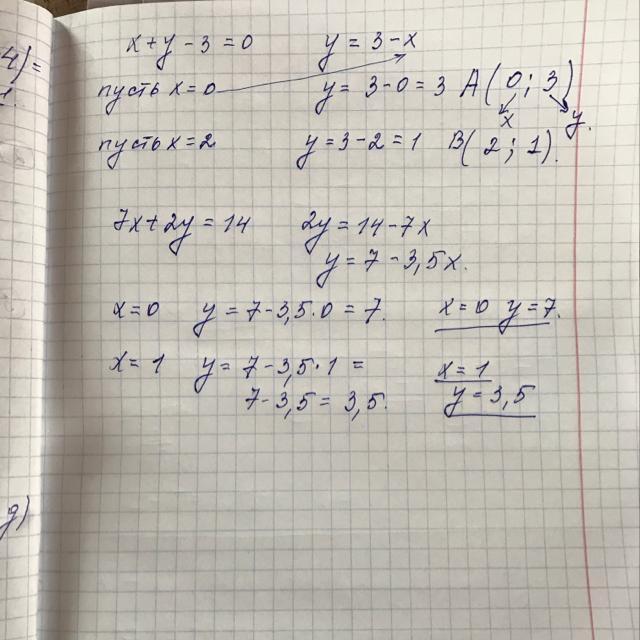 4)=
x+y-3=0 y=3-x
пусть x=0 y=3-0=3 A(0;3)
x y.
пусть x=2 y=3-2=1 B(2;1).
7x+2y=14 2y=14-7x
y=7-3,5x.
x=0 y=7-3,5·0=7. x=0 y=7.
x=1 y=7-3,5·1= x=1
7-3,5=3,5. y=3,5
g)